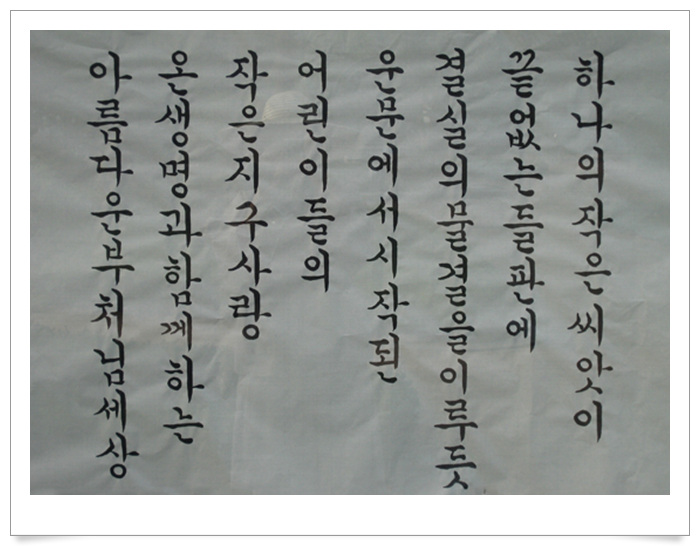 하나의작은씨앗이
끝없는들판에
결실의물결을이루듯
운문에서시작된
어린이들의
작은지구사랑
온생명과함께하는
아름다운부처님세상